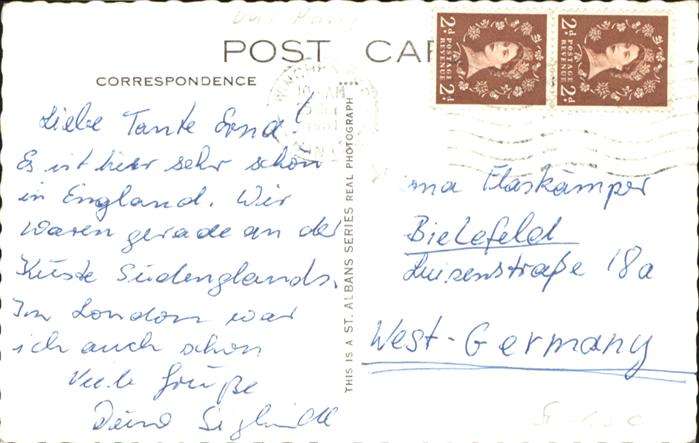 POST CAR
CORRESPONDENCE
Liebe Tante Erna!
Es ist hier sehr schön
in England. Wir
waren gerade an der
Küste Südenglands.
In London war
ich auch schon
Viele Grüße
Deine Sieglinde
THIS IS A ST. ALBANS SERIES REAL PHOTOGRAPH
2d POSTAGE REVENUE 2d
2d POSTAGE REVENUE 2d
rna Flaskämper
Bielefeld
Luisenstraße 18a
West-Germany